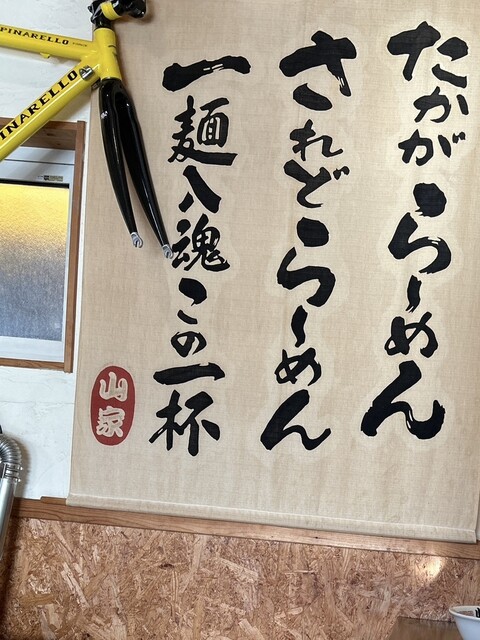 たかがらーめん
されどらーめん
一麺入魂この一杯
山家
PINARELLO
PINARELLO